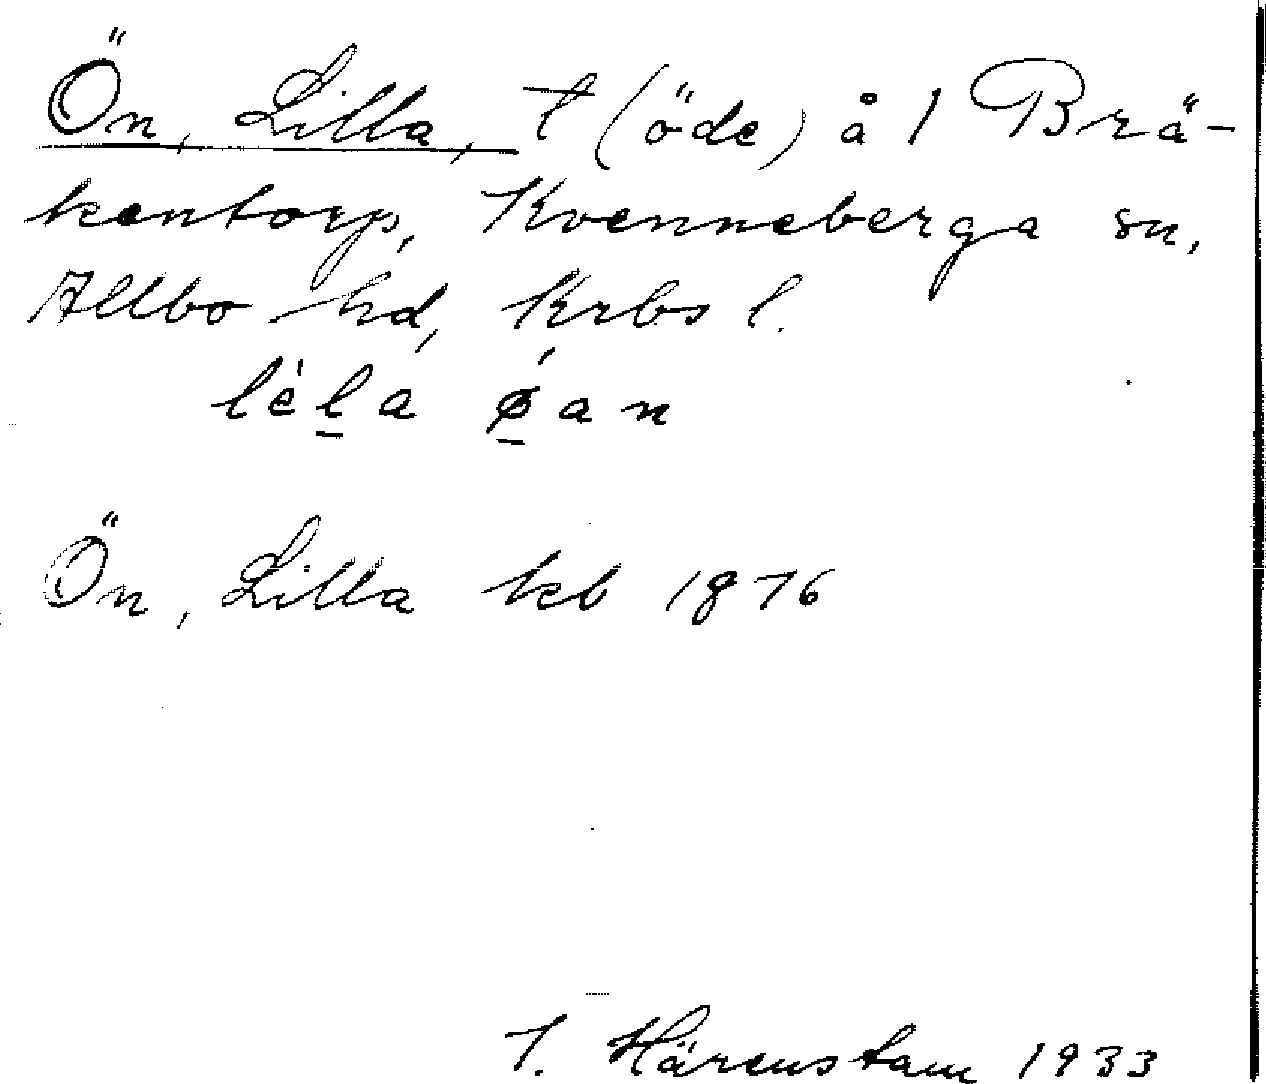 Ön, Lilla, t (öde) å 1 Brä-
kentorp, Kvenneberga sn,
Allbo hd, Krbs l.
Ön, Lilla kb 1876
Härenstam 1933